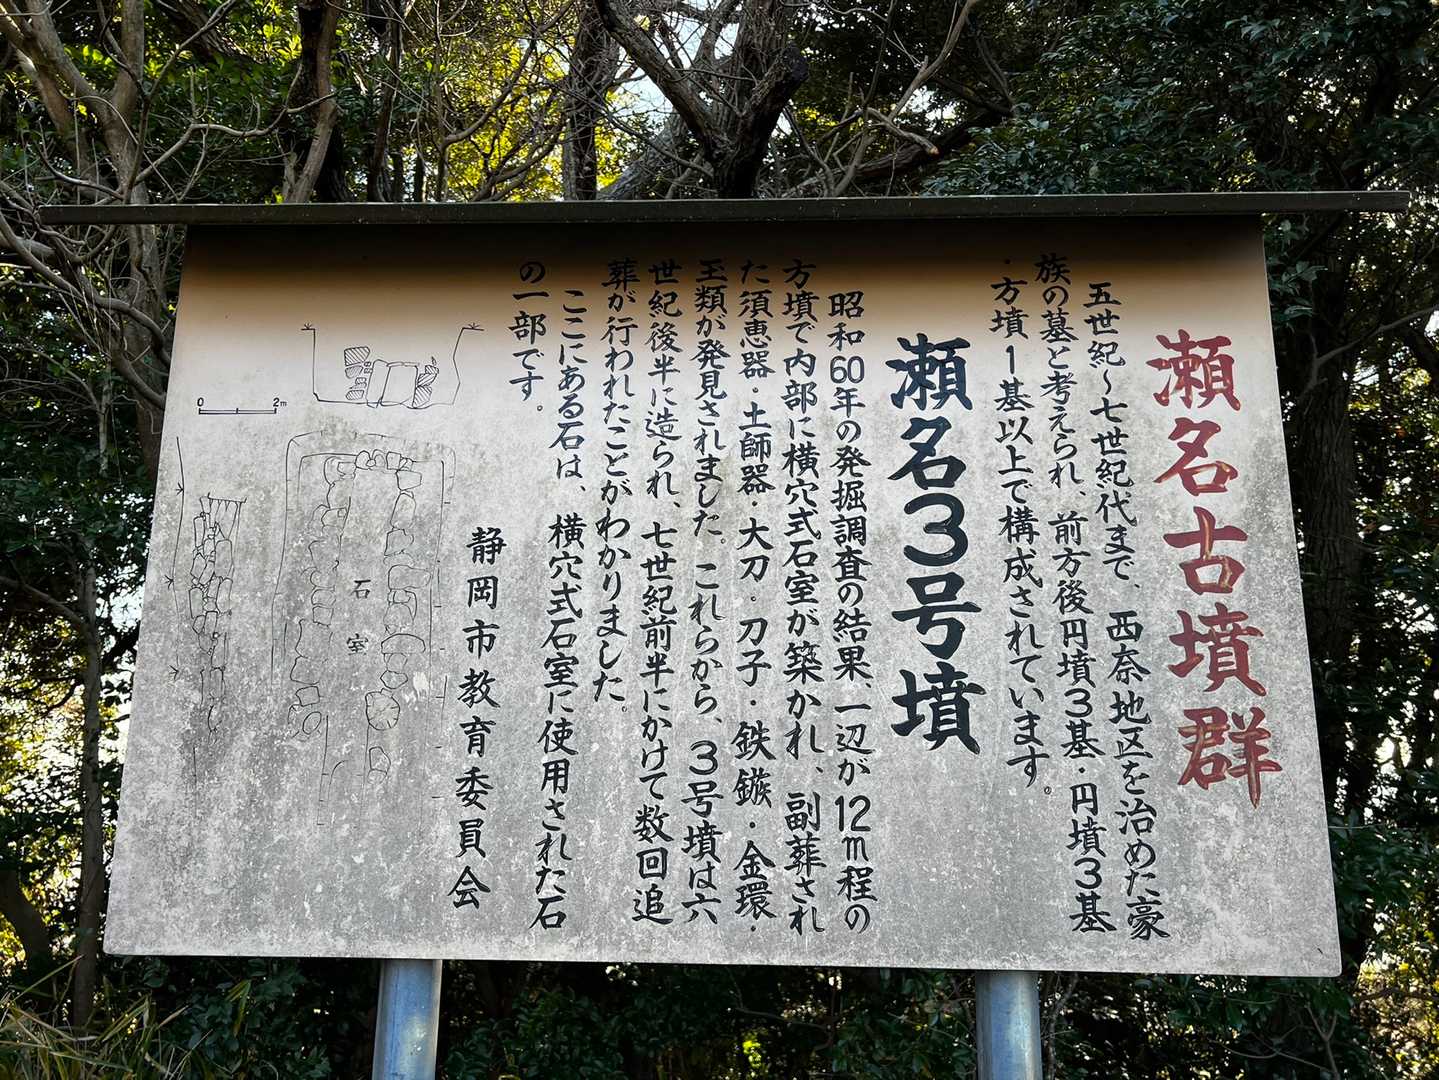 瀬名古墳群
五世紀～七世紀代まで、西奈地区を治めた豪
族の墓と考えられ、前方後円墳3基・円墳3基
・方墳1基以上で構成されています。
瀬名3号墳
昭和60年の発掘調査の結果、一辺が12m程の
方墳で内部に横穴式石室が築かれ、副葬され
た須恵器・土師器・大刀。刀子・鉄鏃・金環・
玉類が発見されました。これらから、3号墳は六
世紀後半に造られ、七世紀前半にかけて数回追
葬が行われたことがわかりました。
ここにある石は、横穴式石室に使用された石
の一部です。
静岡市教育委員会
0 2m
石室